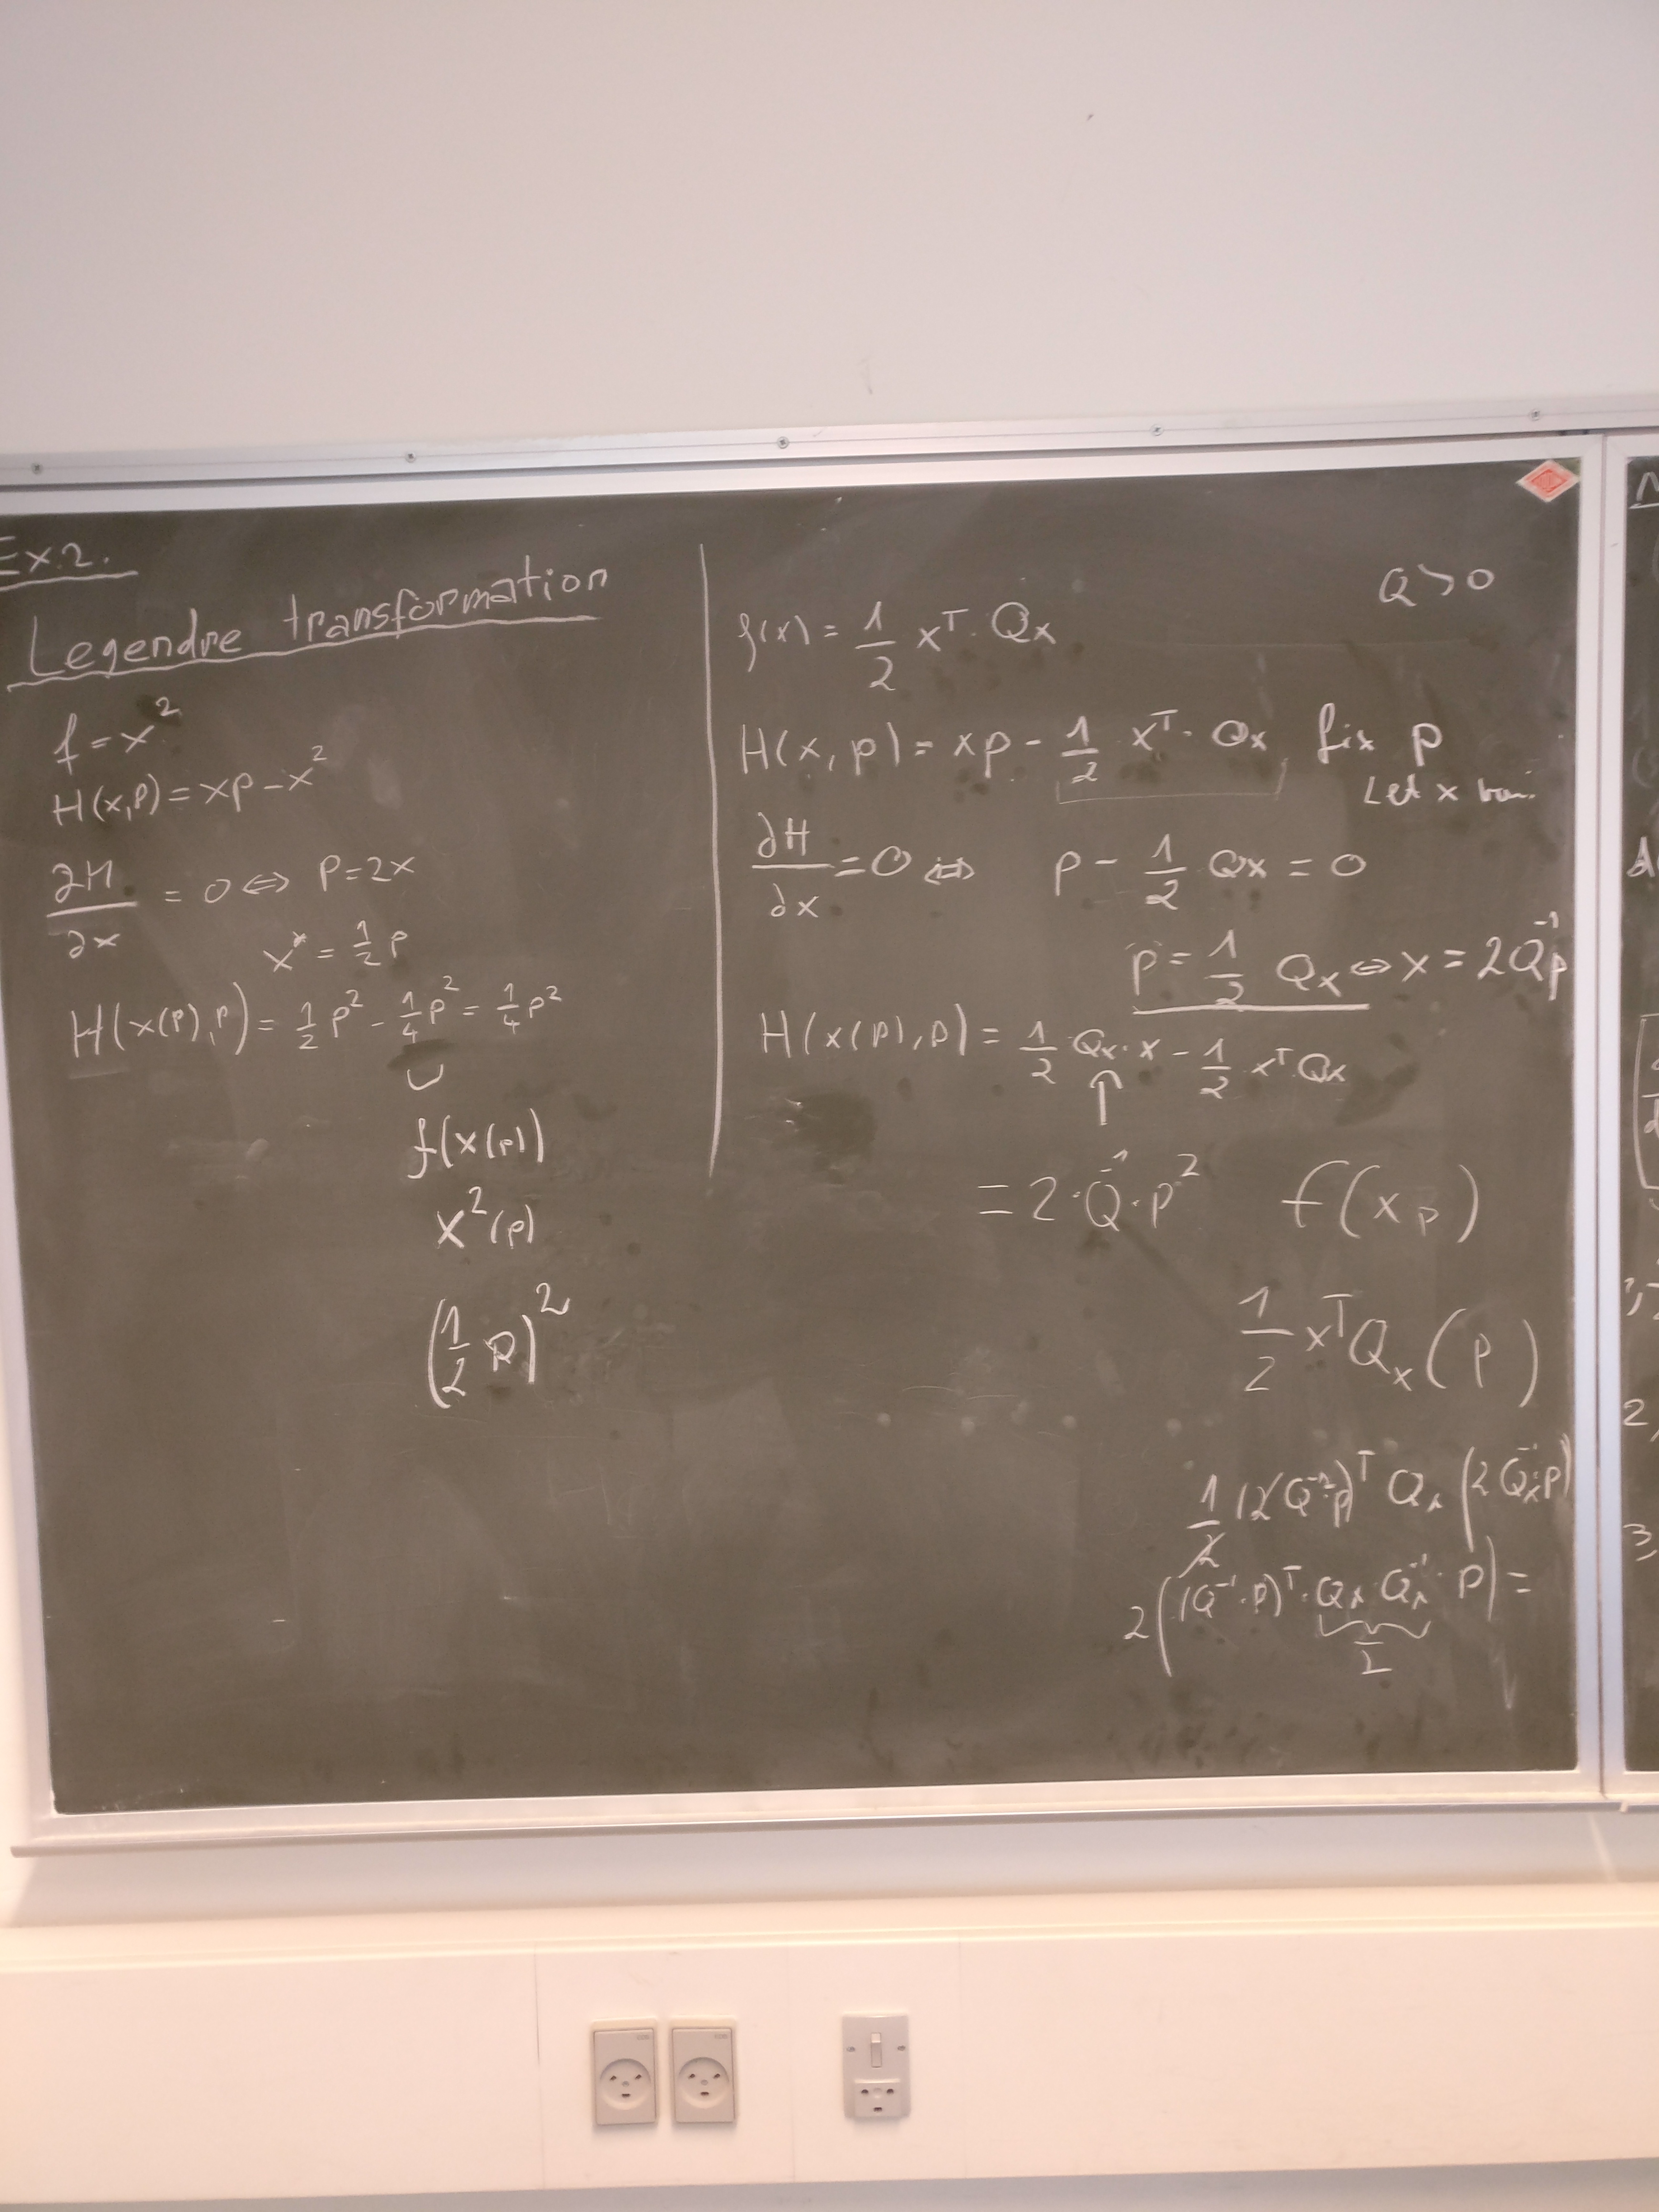 Ex.2.
Legendre transformation
f = x²
H(x,p) = xp - x²
∂H/∂x = 0 ⇔ p = 2x
x* = 1/2 p
H(x(p),p) = 1/2 p² - 1/4 p² = 1/4 p²
f(x(p))
x²(p)
(1/2 p)²
Q > 0
f(x) = 1/2 xᵀ · Qx
H(x,p) = xp - 1/2 xᵀ · Qx, fix p
Let x
∂H/∂x = 0 ⇔ p - 1/2 Qx = 0
p = 1/2 Qx ⇔ x = 2Q⁻¹p
H(x(p),p) = 1/2 Qx · x - 1/2 xᵀ · Qx
↑
= 2 · Q⁻¹ · p² f(xp)
1/2 xᵀQx(p)
1/2 (2Q⁻¹p)ᵀ Qx (2Qx⁻¹p)
2((Q⁻¹ · p)ᵀ · Qx Qx⁻¹ · p) =
I
2,
3,